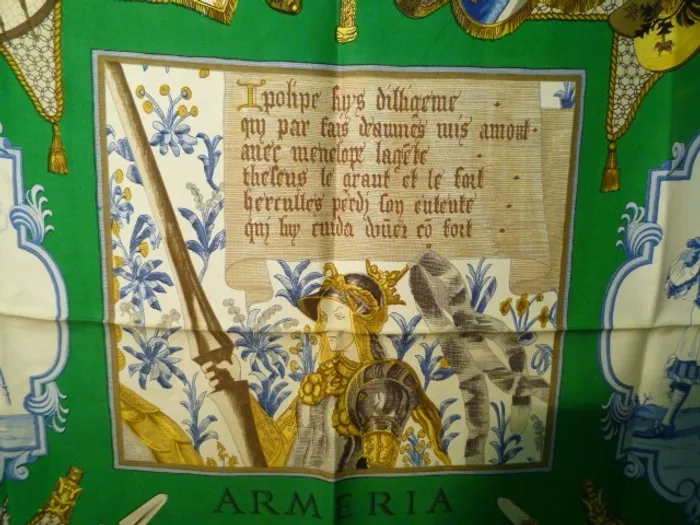 Ipolipe suys dilligeme
qui par fais deaumes mis amont
avec menelope lagete
theseus le grant et le fort
hercules perdi son entente
qui luy cuida doner cō fort
ARMERIA